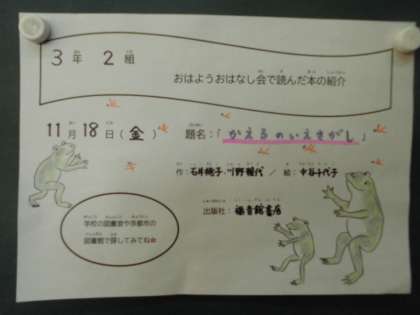 3年 2組
おはようおはなし会で読んだ本の紹介
11月18日(金) 題名:「かえるのいえさがし」
作:石井桃子、川野雅代/絵:中谷千代子
出版社:福音館書店
学校の図書室や京都市の
図書館で探してみてね